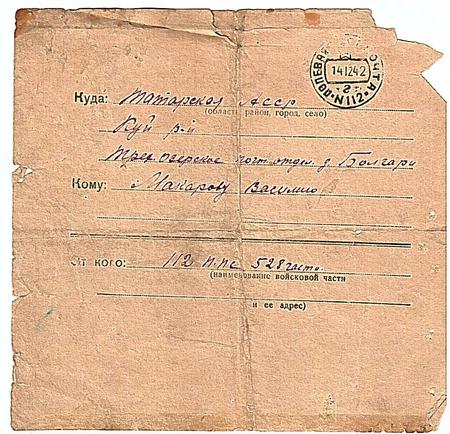 ПОЛЕВАЯ ПОЧТА
14 12 42
-2-
N 112
Куда: Татарская АССР
(область район, город, село)
Куй р-н
Трех Озерское почт отдел. д Болгари
Кому: Макарову Василию
От кого: 112 п.пс 528 часть
(наименование войсковой части
и ее адрес)